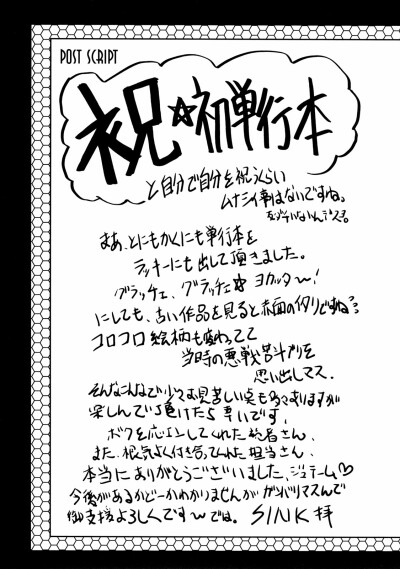 POST SCRIPT
祝☆初単行本
と自分で自分を祝うくらい
ムナシイ事はないですね。
まあ、とにもかくにも単行本を
ラッキーにも出して頂きました。
グラッチェ、グラッチェ☆ヨカッタ〜!
にしても、古い作品を見ると赤面のイタリですね
コロコロ絵柄も変わってて
当時の悪戦苦斗ブリを
思い出しマス。
そんなこんなで少々お見苦しい点も多々ありますが
楽しんで頂けたら幸いです。
ボクを応エンしてくれた読者さん、
また、根気よく付き合ってくれた担当さん、
本当にありがとうございました、ジュテーム♡
今後があるかどーかわかりませんがガンバリマスんで
御支援よろしくです〜では。 SINK 拝